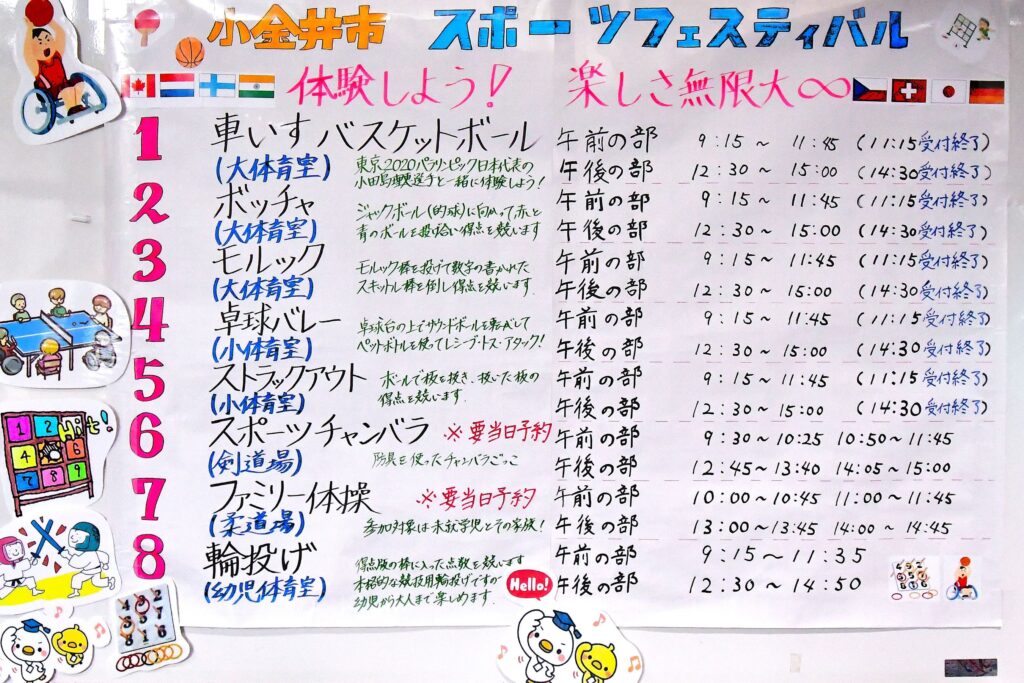 小金井市 スポーツフェスティバル
体験しよう! 楽しさ無限大∞
1 車いすバスケットボール 午前の部 9:15~11:45 (11:15受付終了)
(大体育室) 東京2020パラリンピック日本代表の 午後の部 12:30~15:00 (14:30受付終了)
選手と一緒に体験しよう!
2 ボッチャ 午前の部 9:15~11:45 (11:15受付終了)
(大体育室) ジャックボール(的球)に向かって、赤と 午後の部 12:30~15:00 (14:30受付終了)
青のボールを投げ合い得点を競います
3 モルック 午前の部 9:15~11:45 (11:15受付終了)
(大体育室) モルック棒を投げて数字の書かれた 午後の部 12:30~15:00 (14:30受付終了)
スキットル棒を倒し得点を競います.
4 卓球バレー 午前の部 9:15~11:45 (11:15受付終了)
(小体育室) 卓球台の上でサウンドボールを転がして 午後の部 12:30~15:00 (14:30受付終了)
ペットボトルを使ってレシーブ・トス・アタック!
5 ストラックアウト 午前の部 9:15~11:45 (11:15受付終了)
(小体育室) ボールで板を抜き、抜いた板の 午後の部 12:30~15:00 (14:30受付終了)
得点を競います.
6 スポーツチャンバラ ※要当日予約 午前の部 9:30~10:25 10:50~11:45
(剣道場) 防具を使ったチャンバラごっこ 午後の部 12:45~13:40 14:05~15:00
7 ファミリー体操 ※要当日予約 午前の部 10:00~10:45 11:00~11:45
(柔道場) 参加対象は未就学児とその家族! 午後の部 13:00~13:45 14:00~14:45
8 輪投げ 午前の部 9:15~11:35
(幼児体育室) 得点版の棒に入った点数を競います 午後の部 12:30~14:50
本格的な競技用輪投げですが
幼児から大人まで楽しめます.
1 2 Hit!
4 6
7 8 9
Hello!